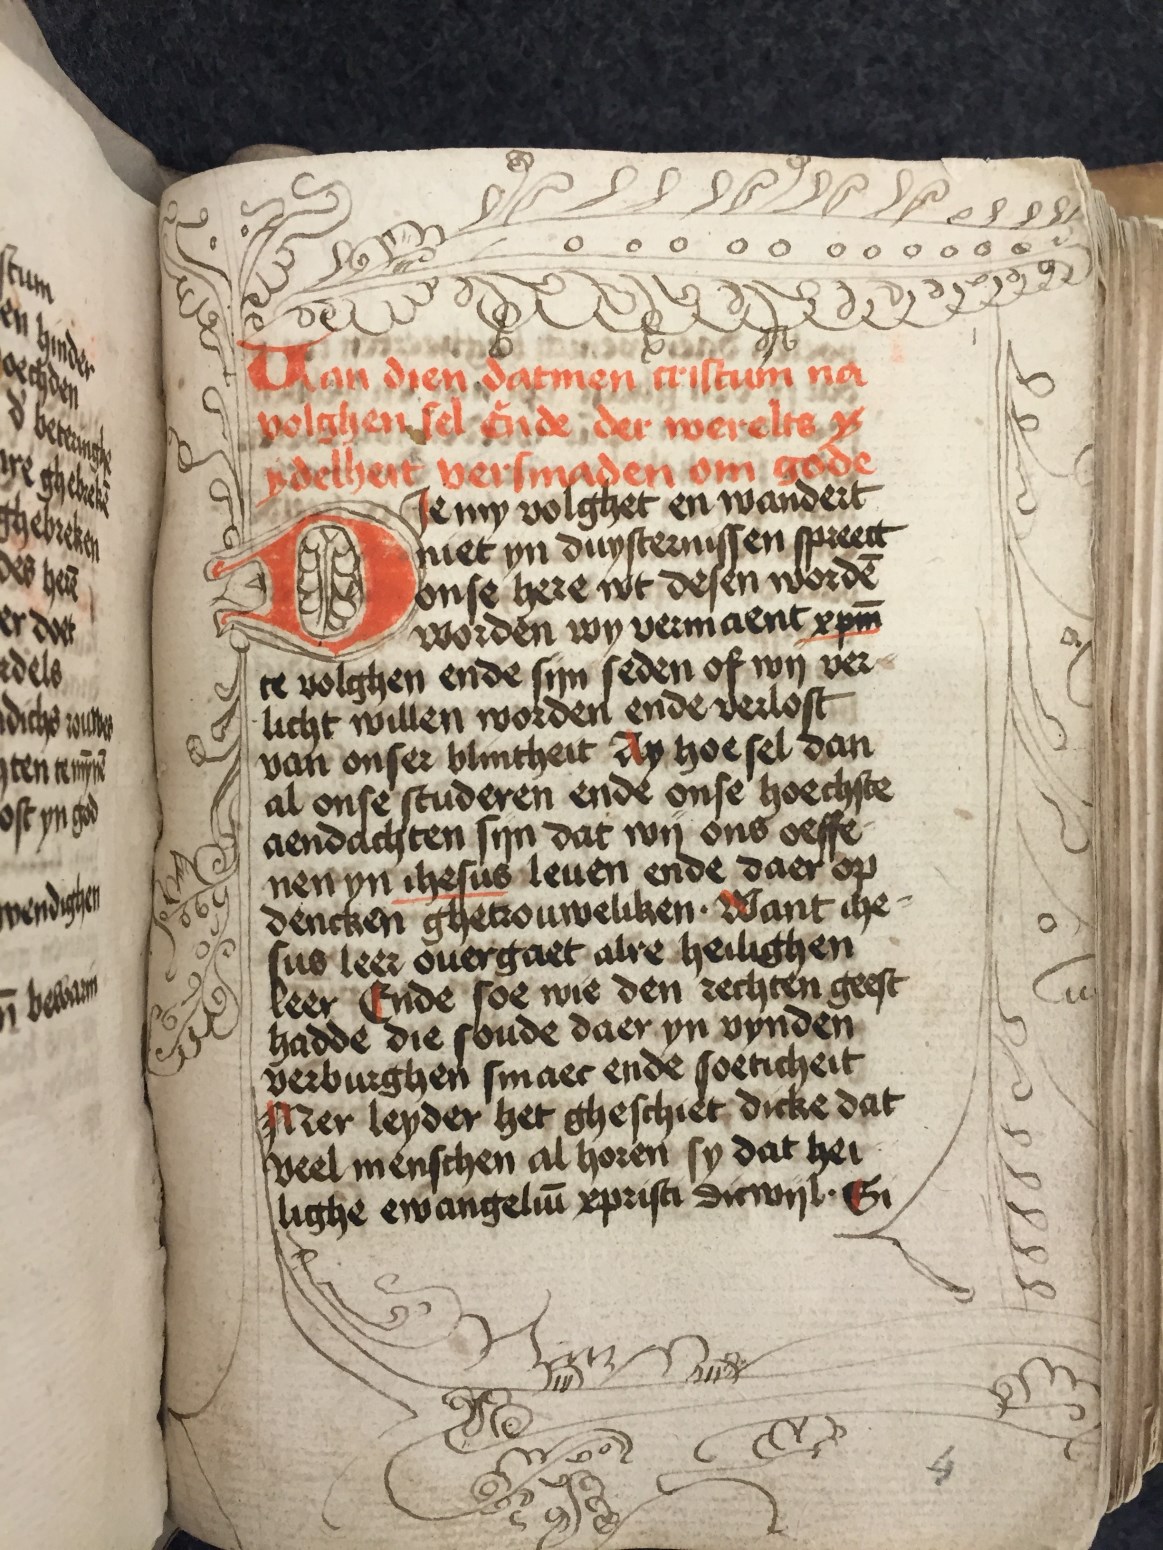 stum
en hinder
oechden
d' beteringhe
re ghebrekē
ghebreken
des herē
er doet
rdels
ost yn god
wendighen
Uan dien datmen cristum na
volghen sel Ende der werelts y
ydelheit versmaden om gode
Die my volghet en wandert
niet yn duysternissen spreect
onse here wt desen wordē
worden wy vermaent xpm̄
te volghen ende sijn seden of wij ver-
licht willen worden ende verlost
van onser blintheit Ay hoe sel dan
al onse studeren ende onse hoechste
aendachten sijn dat wij ons oeffe-
nen yn ihesus leuen ende daer op
dencken ghetrouweliken. Want ihe-
sus leer ouergaet alre heilighen
leer Ende soe wie den rechten geest
hadde die soude daer yn vynden
verburghen smaec ende soeticheit
Mer leyder het gheschiet dicke dat
veel menschen al horen sy dat hei
lighe ewangeliū xpristi dicwijl. Si
4